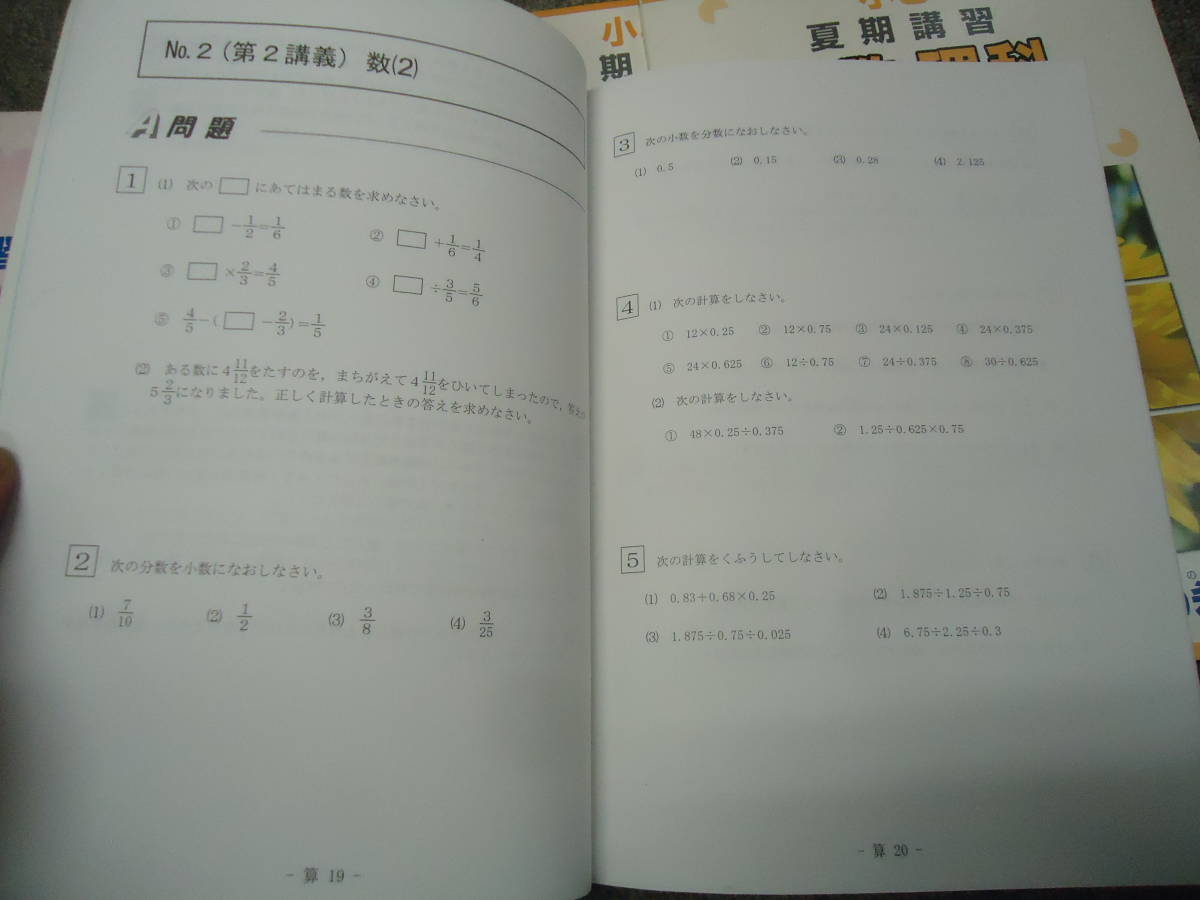 No.2（第2講義） 数(2)
A問題
1 (1) 次の□にあてはまる数を求めなさい。
① □－1/2＝1/6 ② □＋1/6＝1/4
③ □×2/3＝4/5 ④ □÷3/5＝5/6
⑤ 4/5－(□－2/3)＝1/5
(2) ある数に4 11/12をたすのを，まちがえて4 11/12をひいてしまったので，答え
5 2/3になりました。正しく計算したときの答えを求めなさい。
2 次の分数を小数になおしなさい。
(1) 7/10 (2) 1/2 (3) 3/8 (4) 3/25
－ 算 19 －
3 次の小数を分数になおしなさい。
(1) 0.5 (2) 0.15 (3) 0.28 (4) 2.125
4 (1) 次の計算をしなさい。
① 12×0.25 ② 12×0.75 ③ 24×0.125 ④ 24×0.375
⑤ 24×0.625 ⑥ 12÷0.75 ⑦ 24÷0.375 ⑧ 30÷0.625
(2) 次の計算をしなさい。
① 48×0.25÷0.375 ② 1.25÷0.625×0.75
5 次の計算をくふうしてしなさい。
(1) 0.83＋0.68×0.25 (2) 1.875÷1.25÷0.75
(3) 1.875÷0.75÷0.025 (4) 6.75÷2.25÷0.3
－ 算 20 －
小
期
夏期講習
理科
の